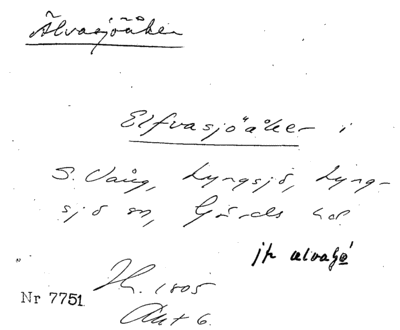 Älvasjöåker
Elfvasjöåker i
S. Vång, Lyngsjö, Lyng-
sjö sn, Gärds hd.
jfr alvasjö
Nr 7751
Sk. 1805
Akt 6.